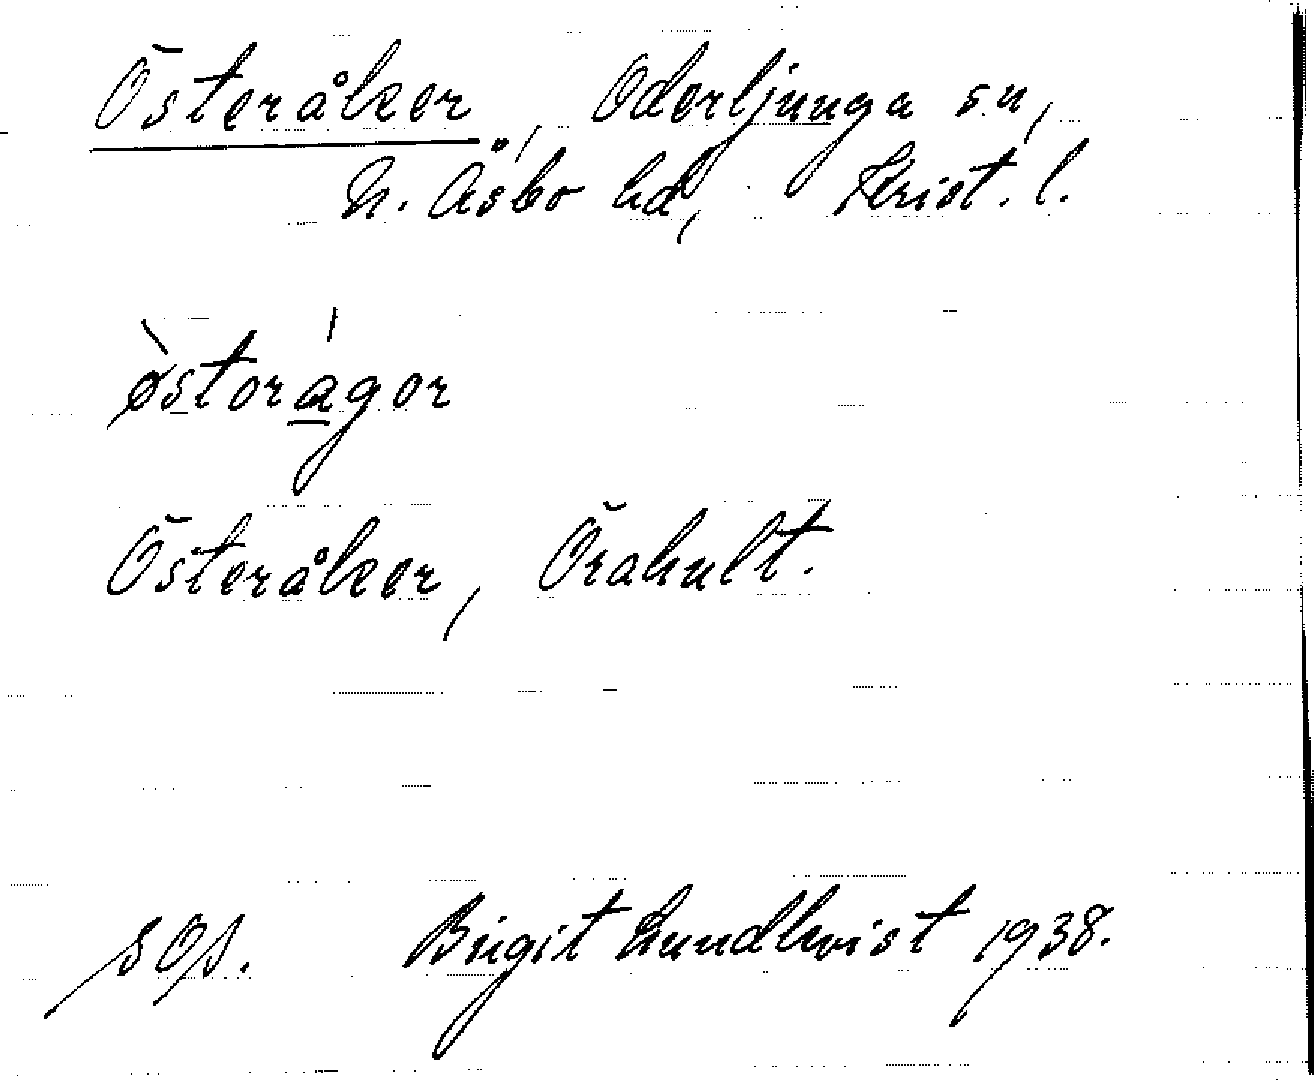 Österåker, Oderljunga sn,
N. Åsbo hd, Krist. l.
ø̀storágor
Österåker, Örahult.
SOS. Birgit Lundkvist 1938.